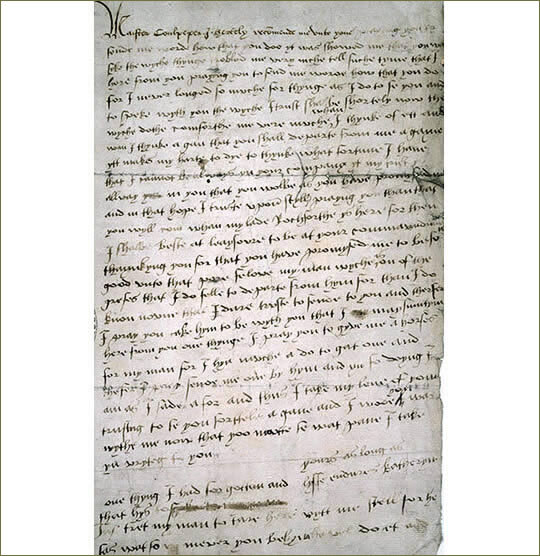 Master Coulpeper I hertely recomend me unto youe praying you to
sende me worde how that you doo yt was showed me that you was
sike the wyche thynge trobled me very muche tell suche tyme that I
here from you praying you to send me worde how that you do
for I never longed so muche for thynge as I do to se you and
to speke wyth you the wyche I trust shal be shortely now the
wyche dothe comforthe me very muche whan I thynke of ett and
wan I thynke agan that you shall departe from me agane
ytt makes my harte to dye to thynke what fortune I have
that I cannot be always yn your company yt my trust ys
allway in you that you wolbe as you have promysed me
and in that hope I truste upon styll praying you than that
you wyll com whan my lade Rochforthe ys here for then
I shalbe beste at leaysoure to be at your commarendmant
thankyng you for that you have promysed me to be so
good unto that pore felowe my man wyche is on of the
grefes that I do felle to departe from hym for than I do
know noone that I dare truste to sende to you and therfor
I pray you take hym to be wyth you that I may sumtym
here from you one thynge I pray you to gyve me a horse
for my man for I hyd muche ado to gat one and
therfor I pray sende me one by hym and yn so doying I
am as I sade afor and thus I take my leve of you
trusting to se you shortele agane and I wode you war
wythe me now that you maitte se wat pane I take
yn wryteg to you
yours as long as
lyffe endures Katheryn
one thyng I had forgotten and
that hys
tret my man to tare here wytt me styll for he
sas wat so mever you bed hym he wyll do et and